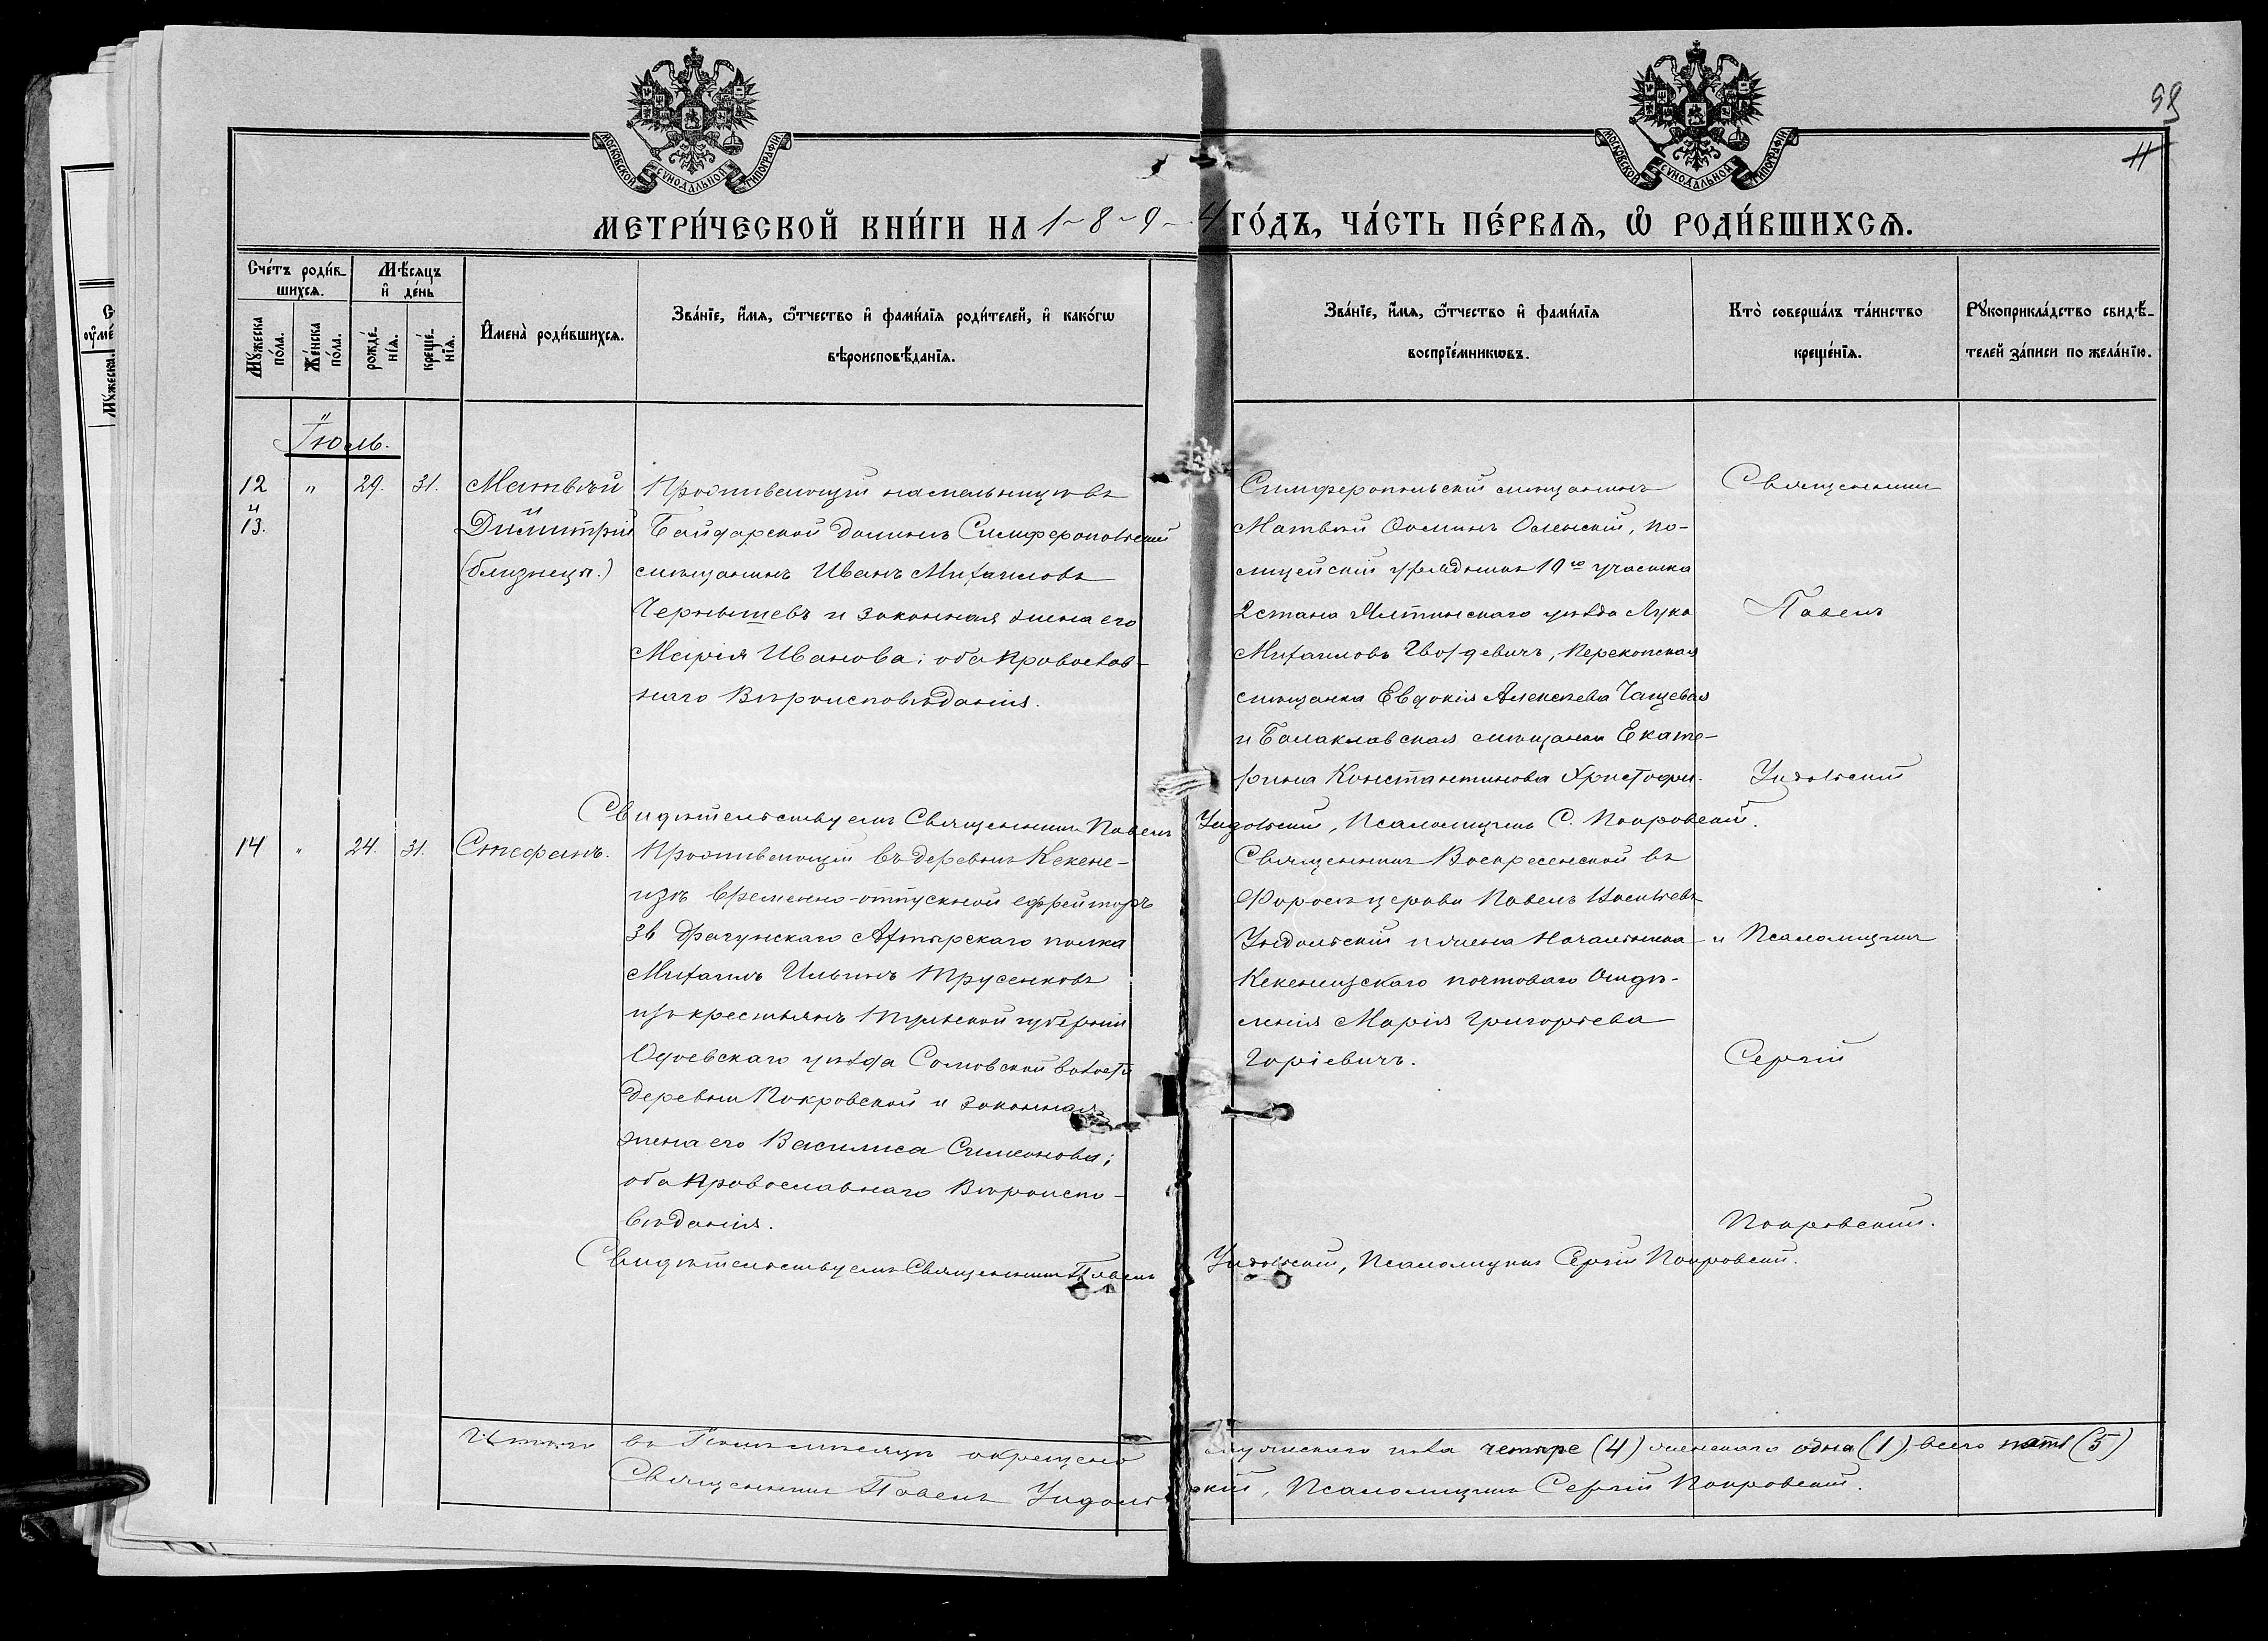 МОСКОВСКОЙ СѴНОДАЛЬНОЙ ТИПОГРАФІИ
МОСКОВСКОЙ СѴНОДАЛЬНОЙ ТИПОГРАФІИ
98
11
МЕТРИ́ЧЕСКОЙ КНИ́ГИ НА 1-8-9-4 ГО́ДЪ, ЧА́СТЬ ПЕ́РВАѦ, Ѡ҆ РОДИ́ВШИХСѦ.
Сче́тъ роди́в-
шихсѧ.
Мѣ́сѧцъ
и҆ де́нь
Мꙋ́жеска по́ла.
Же́нска по́ла.
рожде́-нїѧ.
креще́-нїѧ.
И҆мена̀ роди́вшихсѧ.
Зва́нїе, и҆́мѧ, ѻ҆́тчество и҆ фами́лїѧ роди́телей, и҆ како́гѡ
вѣроисповѣ́данїѧ.
Зва́нїе, и҆́мѧ, ѻ҆́тчество и҆ фами́лїѧ
воспрїе́мникѡвъ.
Кто̀ соверша́лъ та́инство
креще́нїѧ.
Рꙋкоприкла́дство свидѣ́-
телей за́писи по жела́нїю.
Іюль.
12 и 13. " 29. 31.
Матвѣй
и
Димитрій
(близнецы.)
Проживающій на мельницѣ въ
Байдарской долинѣ Симферопольскій
мѣщанинъ Иванъ Михаиловъ
Чернышевъ и законная жена его
Марія Иванова; оба православ-
наго Вѣроисповѣданія.
Симферопольскій мѣщанинъ
Матвѣй Ѳоминъ Осенскій, по-
лицейскій урядникъ 10го участка
2 стана Ялтинскаго уѣзда Лука
Михаиловъ Гвоздевичъ, Перекопская
мѣщанка Евдокія Алексѣева Чащевая
и Балаклавская мѣщанка Екате-
рина Константинова Христофи.
Священникъ
Павелъ
Ундольскій
Свидѣтельствуемъ Священникъ Павелъ Ундольскій, Псаломщикъ С. Покровскій.
14 " 24. 31. Стефанъ.
Проживающій въ деревнѣ Кекене-
изъ временно-отпускной ефрейторъ
36 драгунскаго Ахтырскаго полка
Михаилъ Ильинъ Трусенковъ
изъ крестьянъ Тульской губерніи
Одоевскаго уѣзда Сомовской волости
деревни Покровской и законная
жена его Василиса Симеонова;
оба православнаго Вѣроиспо-
вѣданія.
Священникъ Воскресенской въ
Форосѣ церкви Павелъ Васильевъ
Ундольскій и жена Начальника
Кекенеизскаго почтоваго Отдѣ-
ленія Марія Григорьева
Горіевичъ.
и Псаломщикъ
Сергій
Покровскій.
Свидѣтельствуемъ Священникъ Павелъ Ундольскій, Псаломщикъ Сергій Покровскій.
Итого въ Іюлѣ мѣсяцѣ окрещено мужескаго пола четыре (4) женскаго одна (1), всего пять (5)
Священникъ Павелъ Ундольскій, Псаломщикъ Сергій Покровскій.